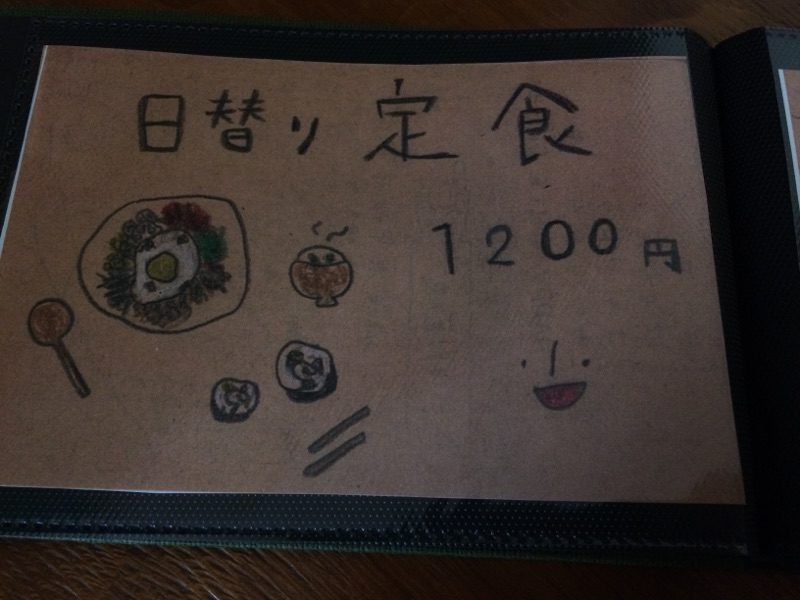 日替り定食
1200円